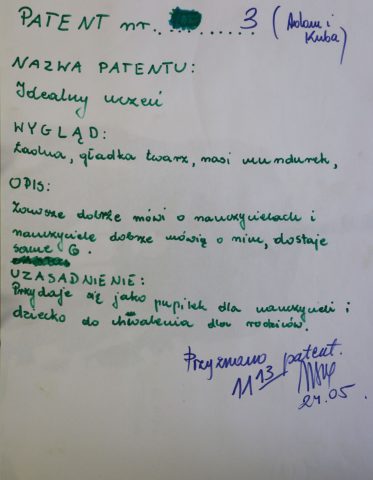 PATENT nr. ........... 3 (Adam i Kuba)
NAZWA PATENTU:
Idealny uczeń
WYGLĄD:
Ładna, gładka twarz, nosi mundurek,
OPIS:
Zawsze dobrze mówi o nauczycielach i
nauczyciele dobrze mówią o nim, dostaje
same 6.
UZASADNIENIE:
Przydaje się jako pupilek dla nauczycieli i
dziecko do chwalenia dla rodziców.
Przyznano patent.
11 13
24.05.